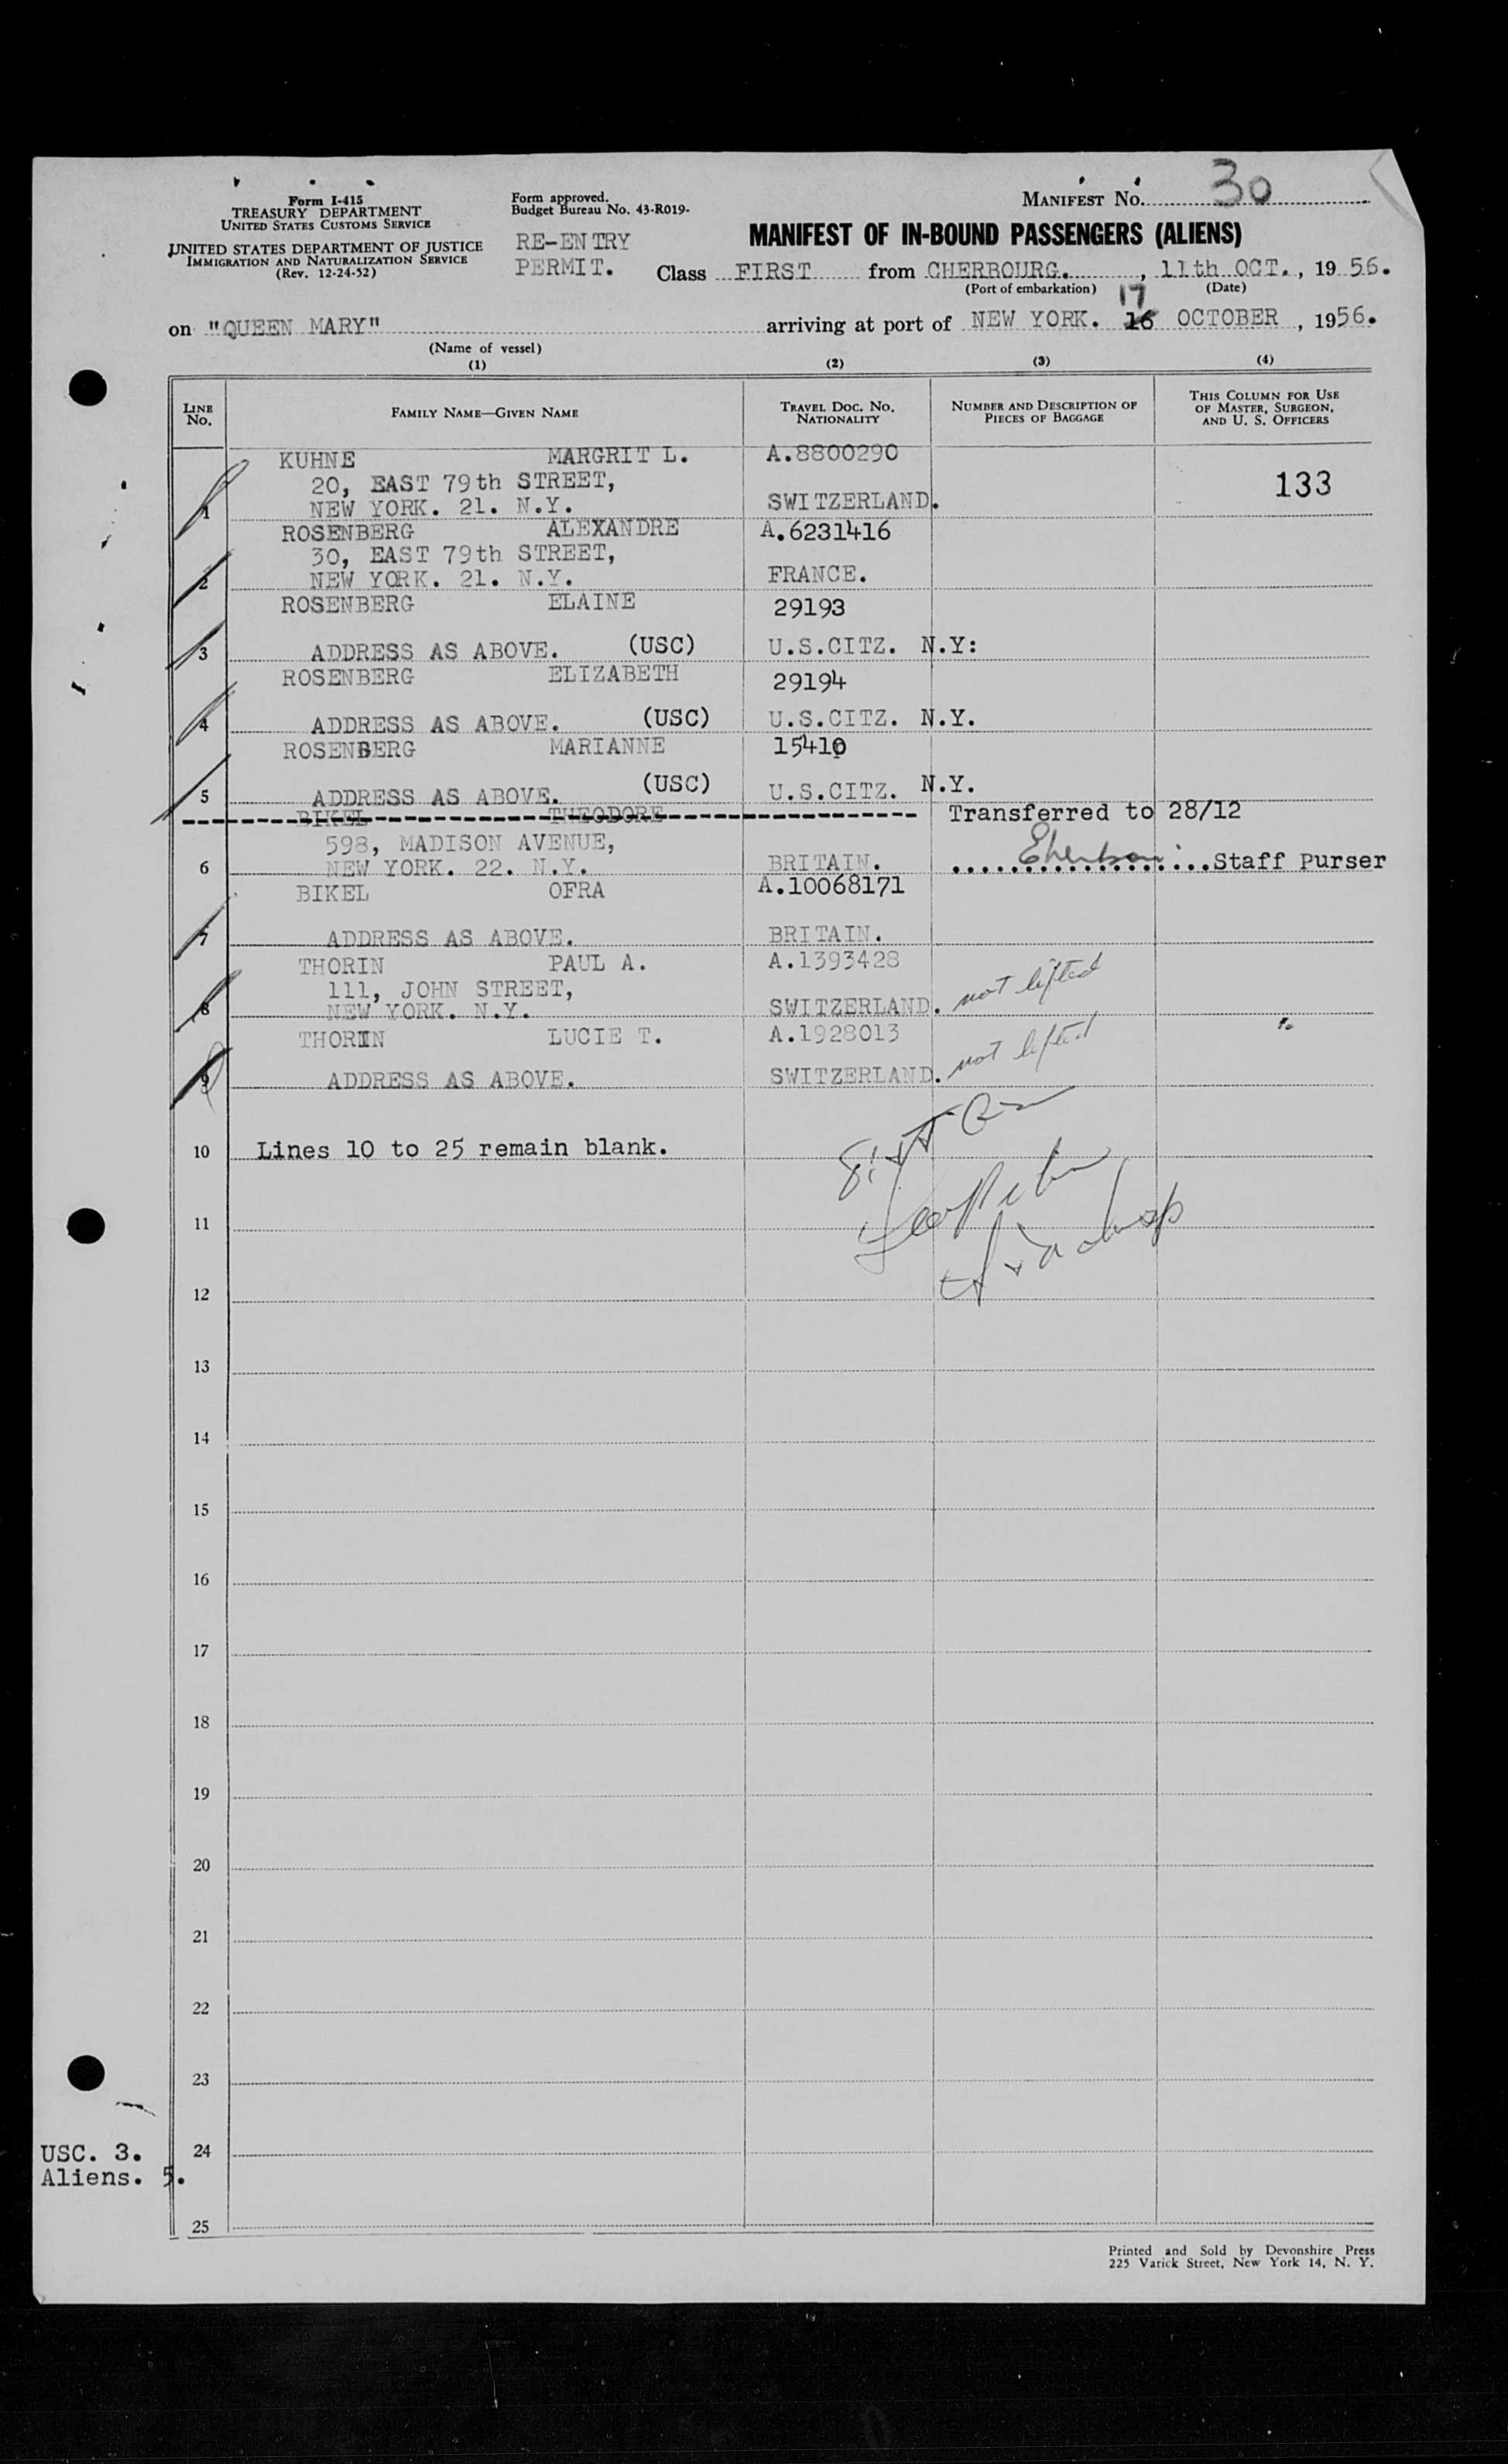 Form I-415
TREASURY DEPARTMENT
UNITED STATES CUSTOMS SERVICE
UNITED STATES DEPARTMENT OF JUSTICE
IMMIGRATION AND NATURALIZATION SERVICE
(Rev. 12-24-52)
Form approved.
Budget Bureau No. 43-R019-
RE-ENTRY
PERMIT.
MANIFEST NO. 30
MANIFEST OF IN-BOUND PASSENGERS (ALIENS)
Class FIRST from CHERBOURG. , 11th OCT. , 1956.
(Port of embarkation) (Date)
on "QUEEN MARY" arriving at port of NEW YORK. 17 16 OCTOBER , 1956.
(Name of vessel)
(1) (2) (3) (4)
LINE NO. FAMILY NAME—GIVEN NAME TRAVEL DOC. NO. NATIONALITY NUMBER AND DESCRIPTION OF PIECES OF BAGGAGE THIS COLUMN FOR USE OF MASTER, SURGEON, AND U. S. OFFICERS
KUHNE MARGRIT L. A.8800290
20, EAST 79th STREET, 133
1 NEW YORK. 21. N.Y. SWITZERLAND.
ROSENBERG ALEXANDRE A.6231416
30, EAST 79th STREET,
2 NEW YORK. 21. N.Y. FRANCE.
ROSENBERG ELAINE 29193
3 ADDRESS AS ABOVE. (USC) U.S.CITZ. N.Y:
ROSENBERG ELIZABETH 29194
4 ADDRESS AS ABOVE. (USC) U.S.CITZ. N.Y.
ROSENBERG MARIANNE 15410
5 ADDRESS AS ABOVE. (USC) U.S.CITZ. N.Y.
BIKEL THEODORE Transferred to 28/12
598, MADISON AVENUE,
6 NEW YORK. 22. N.Y. BRITAIN. Staff Purser
BIKEL OFRA A.10068171
7 ADDRESS AS ABOVE. BRITAIN.
THORIN PAUL A. A.1393428
111, JOHN STREET,
8 NEW YORK. N.Y. SWITZERLAND. not lifted
THORIN LUCIE T. A.1928013
9 ADDRESS AS ABOVE. SWITZERLAND. not lifted
10 Lines 10 to 25 remain blank.
11
12
13
14
15
16
17
18
19
20
21
22
23
USC. 3. 24
Aliens. 5.
25
Printed and Sold by Devonshire Press
225 Varick Street, New York 14, N. Y.